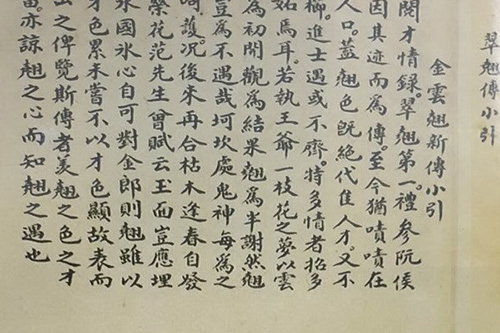 翠翹傳小引
金雲翹新傳小引
閱才情錄翠翹第一。禮參阮侯
因其迹而為傳。至今猶嘖嘖在
人口。蓋翹色既絕代隹人才。又不
櫛。進士遇或不齊。特多情者招多
妬焉耳。若執王爺一枝花之夢以雲
為初開觀為結果翹為半謝然翹
豈為不遇哉坷坎處鬼神每為之
呵護。況後來再合枯木逢春自發
繁花范先生曾賦云玉面豈應埋
國冰心自可對金郎則翹雖以
才色累未嘗不以才色顯故表而
出之俾覽斯傳者羨翹之色之才
亦諒翹之心而知翹之遇也